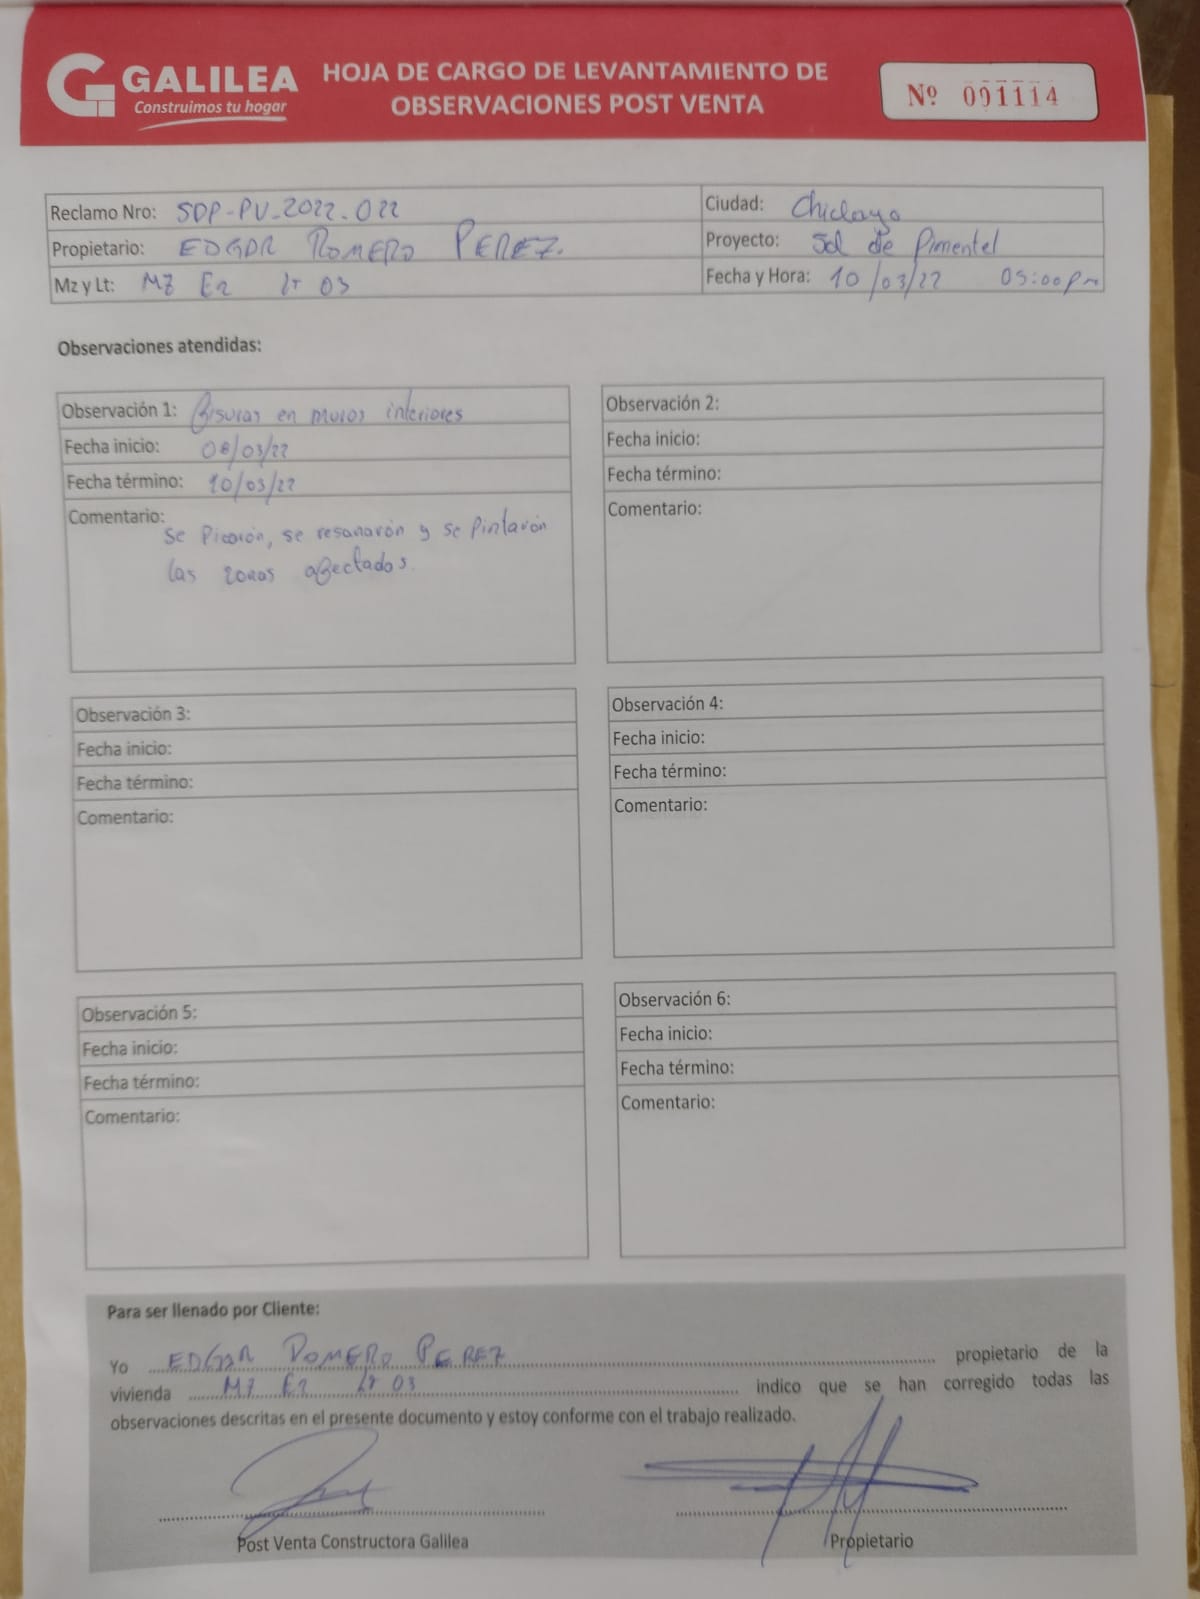 GALILEA
Construimos tu hogar
HOJA DE CARGO DE LEVANTAMIENTO DE
OBSERVACIONES POST VENTA
Nº 001114
Reclamo Nro: SDP-PV-2022-022
Ciudad: Chiclayo
Propietario: EDGAR ROMERO PEREZ.
Proyecto: Sol de Pimentel
Mz y Lt: MZ E2 Lt 03
Fecha y Hora: 10/03/22 05:00pm
Observaciones atendidas:
Observación 1: Fisuras en muros interiores
Fecha inicio: 08/03/22
Fecha término: 10/03/22
Comentario: Se Picarón, se resanarón y se Pintarón
las zonas afectadas.
Observación 2:
Fecha inicio:
Fecha término:
Comentario:
Observación 3:
Fecha inicio:
Fecha término:
Comentario:
Observación 4:
Fecha inicio:
Fecha término:
Comentario:
Observación 5:
Fecha inicio:
Fecha término:
Comentario:
Observación 6:
Fecha inicio:
Fecha término:
Comentario:
Para ser llenado por Cliente:
Yo EDGAR ROMERO PEREZ propietario de la
vivienda MZ E2 Lt 03 indico que se han corregido todas las
observaciones descritas en el presente documento y estoy conforme con el trabajo realizado.
Post Venta Constructora Galilea
Propietario